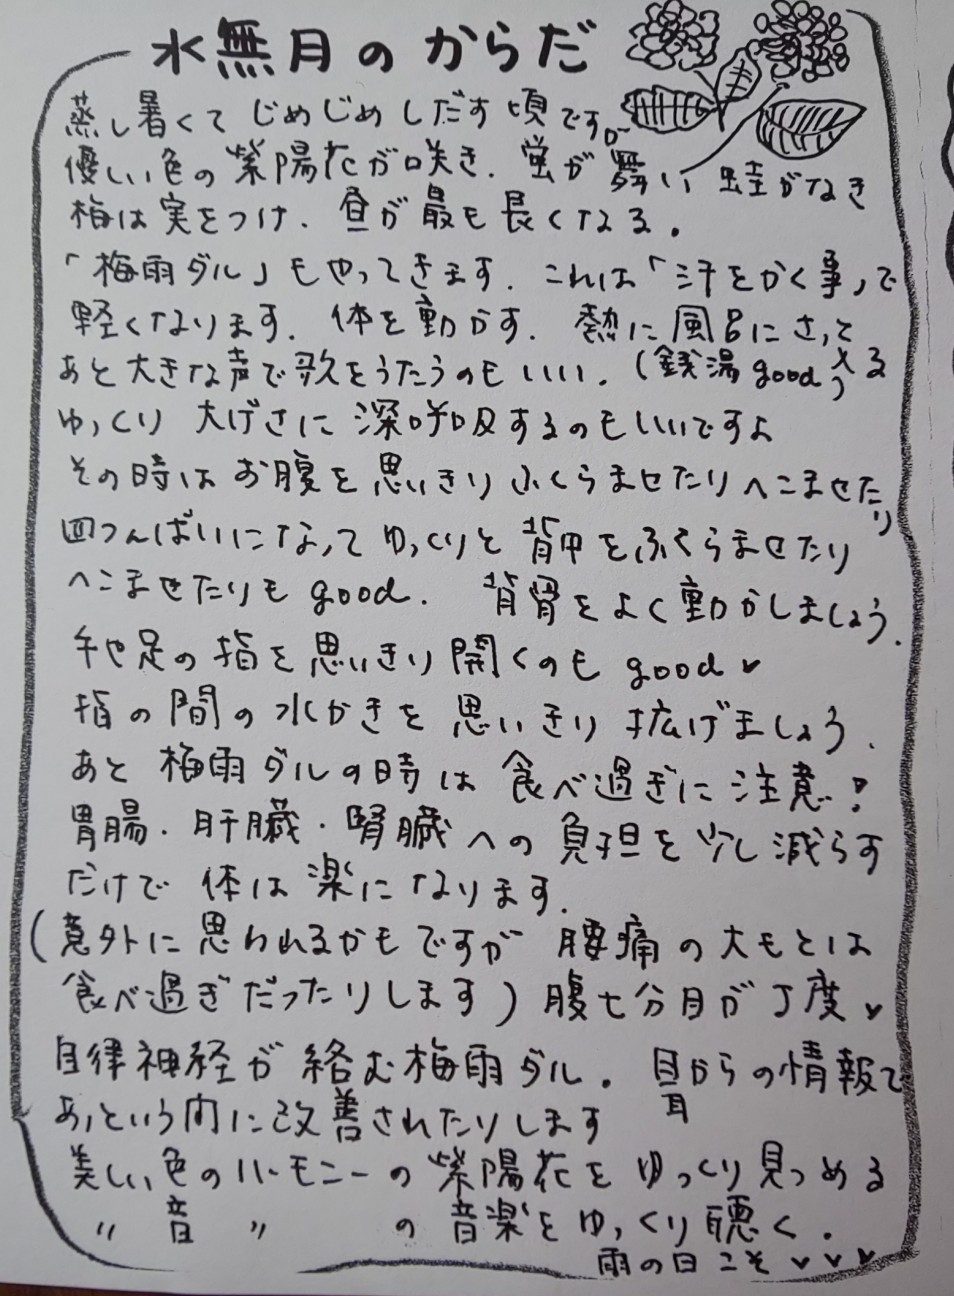 水無月のからだ
蒸し暑くて じめじめ しだす頃です。
優しい色の紫陽花が咲き、蛍が舞い 蛙がなき
梅は実をつけ、昼が最も長くなる。
「梅雨ダル」もやってきます、これは「汗をかく事」で
軽くなります、体を動かす、熱い風呂にさっと
入る
あと大きな声で歌をうたうのもいい。(銭湯good)
ゆっくり 大げさに 深呼吸するのもいいですよ
その時はお腹を思いきりふくらませたりへこませたり
四つんばいになってゆっくりと背中をふくらませたり
へこませたりもgood. 背骨をよく動かしましょう、
手や足の指を思いきり開くのもgood♥
指の間の水かきを思いきり拡げましょう、
あと梅雨ダルの時は食べ過ぎに注意!
胃腸・肝臓・腎臓への負担を少し減らす
だけで体は楽になります、
(意外に思われるかもですが腰痛の大もとは
食べ過ぎだったりします)腹七分目が丁度♥
自律神経が絡む梅雨ダル。目からの情報で
耳
あっという間に改善されたりします
美しい色のハーモニーの紫陽花をゆっくり見つめる
〃 音 〃 の音楽をゆっくり聴く。
雨の日こそ♥♥♥